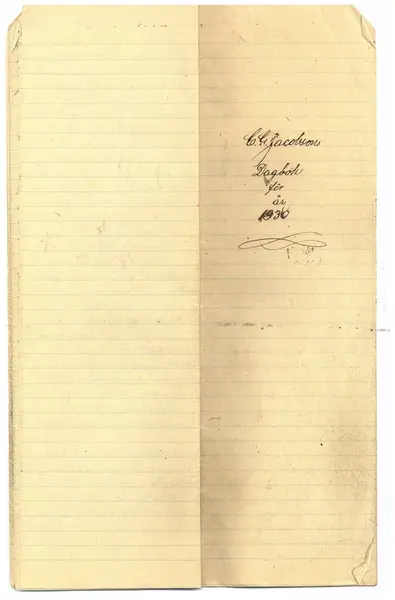 C. G. Jacobsons
Dagbok
för
år
1930